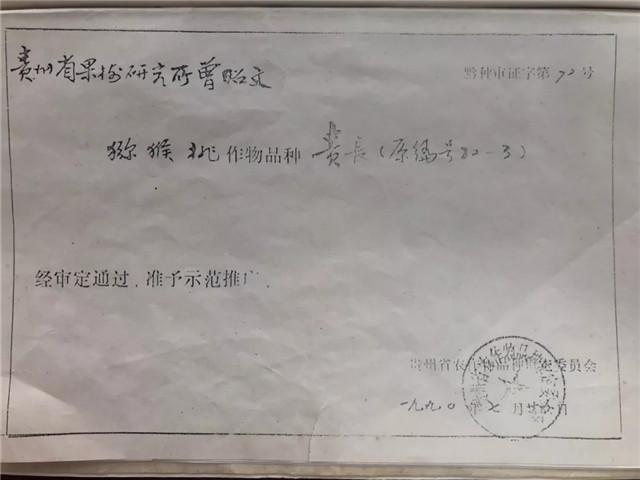 贵州省果树研究所曾昭文
黔种审证字第70号
猕猴桃作物品种贵長(原编号82-3)
经审定通过,准予示范推广。
贵州省农作物品种审定委员会
一九九〇年 月 日